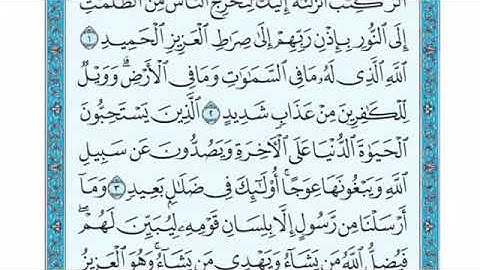 الٓر كِتَٰبٌ أَنزَلۡنَٰهُ إِلَيۡكَ لِتُخۡرِجَ ٱلنَّاسَ مِنَ ٱلظُّلُمَٰتِ
إِلَى ٱلنُّورِ بِإِذۡنِ رَبِّهِمۡ إِلَىٰ صِرَٰطِ ٱلۡعَزِيزِ ٱلۡحَمِيدِ ١
ٱللَّهِ ٱلَّذِي لَهُۥ مَا فِي ٱلسَّمَٰوَٰتِ وَمَا فِي ٱلۡأَرۡضِۗ وَوَيۡلٞ
لِّلۡكَٰفِرِينَ مِنۡ عَذَابٖ شَدِيدٍ ٢ ٱلَّذِينَ يَسۡتَحِبُّونَ
ٱلۡحَيَوٰةَ ٱلدُّنۡيَا عَلَى ٱلۡأٓخِرَةِ وَيَصُدُّونَ عَن سَبِيلِ
ٱللَّهِ وَيَبۡغُونَهَا عِوَجًاۚ أُوْلَٰٓئِكَ فِي ضَلَٰلِۭ بَعِيدٖ ٣ وَمَآ
أَرۡسَلۡنَا مِن رَّسُولٍ إِلَّا بِلِسَانِ قَوۡمِهِۦ لِيُبَيِّنَ لَهُمۡۖ
فَيُضِلُّ ٱللَّهُ مَن يَشَآءُ وَيَهۡدِي مَن يَشَآءُۚ وَهُوَ ٱلۡعَزِيزُ